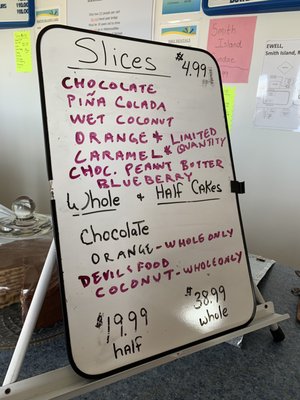 Smith Island
EWELL,
Smith Island, M
Slices
$4.99
CHOCOLATE
PIÑA COLADA
WET COCONUT
ORANGE * LIMITED
CARAMEL * QUANTITY
CHOC. PEANUT BUTTER
BLUEBERRY
Whole & Half Cakes
Chocolate
ORANGE - WHOLE ONLY
DEVILS FOOD
COCONUT - WHOLE ONLY
$19.99
half
$38.99
whole